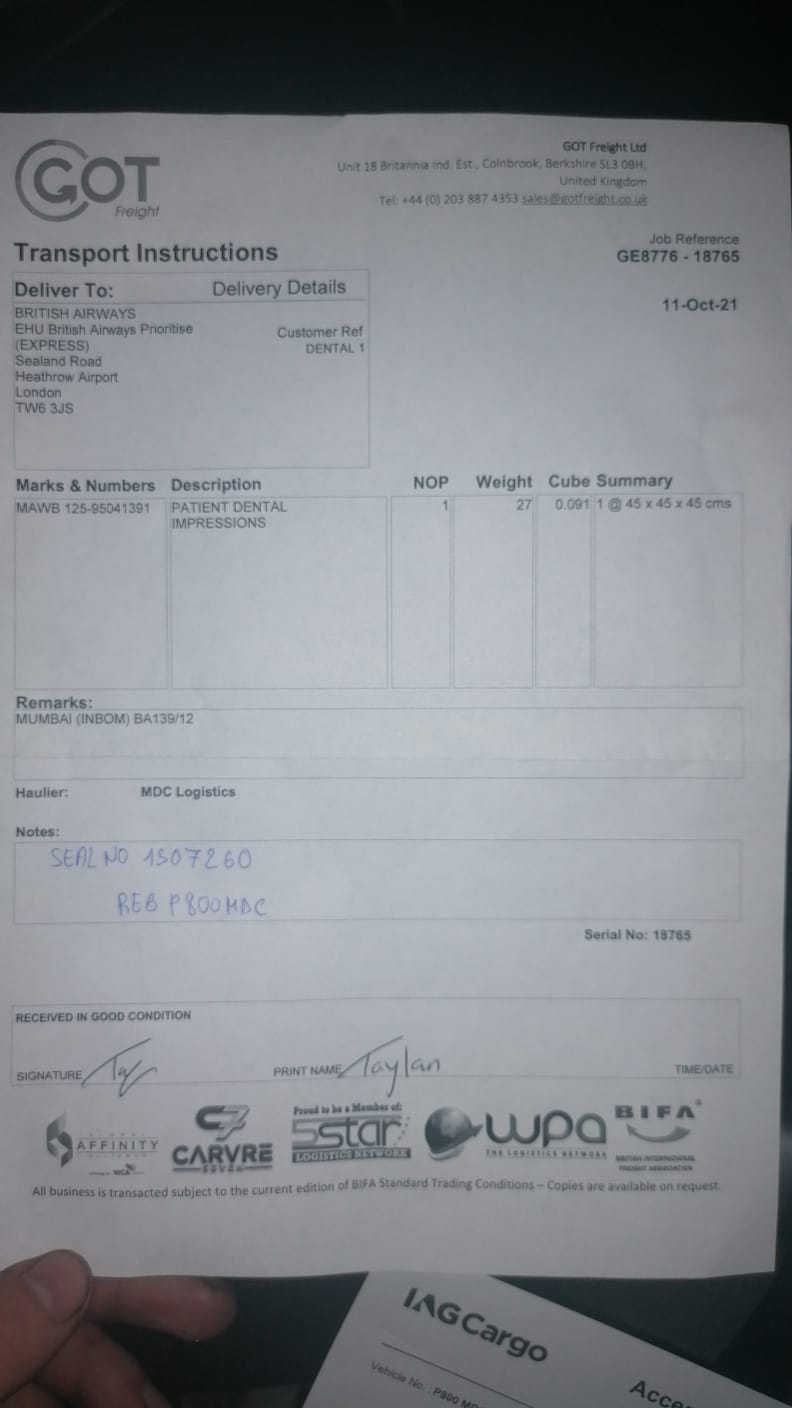 GOT
Freight
GOT Freight Ltd
Unit 18 Britannia Ind. Est., Colnbrook, Berkshire SL3 0BH,
United Kingdom
Tel: +44 (0) 203 887 4353 sales@gotfreight.co.uk
Transport Instructions
Job Reference
GE8776 - 18765
11-Oct-21
Deliver To: Delivery Details
BRITISH AIRWAYS
EHU British Airways Prioritise
(EXPRESS)
Sealand Road
Heathrow Airport
London
TW6 3JS
Customer Ref
DENTAL 1
Marks & Numbers Description NOP Weight Cube Summary
MAWB 125-95041391 PATIENT DENTAL 1 27 0.091 1 @ 45 x 45 x 45 cms
IMPRESSIONS
Remarks:
MUMBAI (INBOM) BA139/12
Haulier: MDC Logistics
Notes:
SEAL NO 1307260
REB P800MDC
Serial No: 18765
RECEIVED IN GOOD CONDITION
SIGNATURE PRINT NAME Taylan TIME/DATE
AFFINITY
WCA
CARVRE
SEVEN
Proud to be a Member of:
5star
LOGISTICS NETWORK
wpa
THE LOGISTICS NETWORK
BIFA
BRITISH INTERNATIONAL
FREIGHT ASSOCIATION
All business is transacted subject to the current edition of BIFA Standard Trading Conditions – Copies are available on request.
IAGCargo
Vehicle No. : P800